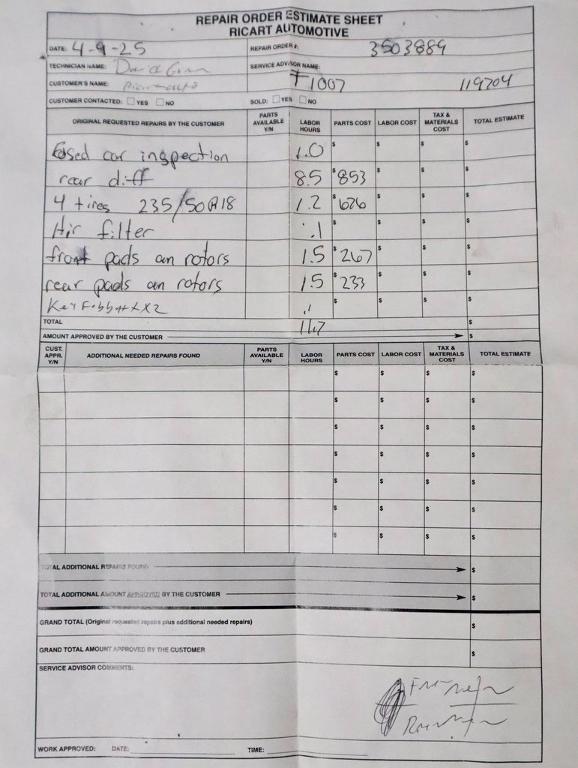 REPAIR ORDER ESTIMATE SHEET
RICART AUTOMOTIVE
DATE: 4-9-25 REPAIR ORDER #: 3503889
TECHNICIAN NAME: SERVICE ADVISOR NAME:
CUSTOMER'S NAME: T1007 119704
CUSTOMER CONTACTED: YES NO SOLD: YES NO
ORIGINAL REQUESTED REPAIRS BY THE CUSTOMER PARTS AVAILABLE Y/N LABOR HOURS PARTS COST LABOR COST TAX & MATERIALS COST TOTAL ESTIMATE
Used car inspection 1.0 $ $ $ $
rear diff 8.5 $ 853 $ $ $
4 tires 235/50R18 1.2 $ 626 $ $ $
Air filter .1 $ $ $ $
front pads an rotors 1.5 $ 267 $ $ $
rear pads an rotors 1.5 $ 233 $ $ $
Key Fob X2 .1 $ $ $ $
TOTAL $
AMOUNT APPROVED BY THE CUSTOMER $
CUST. APPR. Y/N ADDITIONAL NEEDED REPAIRS FOUND PARTS AVAILABLE Y/N LABOR HOURS PARTS COST LABOR COST TAX & MATERIALS COST TOTAL ESTIMATE
$ $ $ $
$ $ $ $
$ $ $ $
$ $ $ $
$ $ $ $
$ $ $ $
$ $ $ $
TOTAL ADDITIONAL REPAIRS FOUND $
TOTAL ADDITIONAL AMOUNT APPROVED BY THE CUSTOMER $
GRAND TOTAL (Original requested repairs plus additional needed repairs) $
GRAND TOTAL AMOUNT APPROVED BY THE CUSTOMER $
SERVICE ADVISOR COMMENTS:
WORK APPROVED: DATE: TIME: